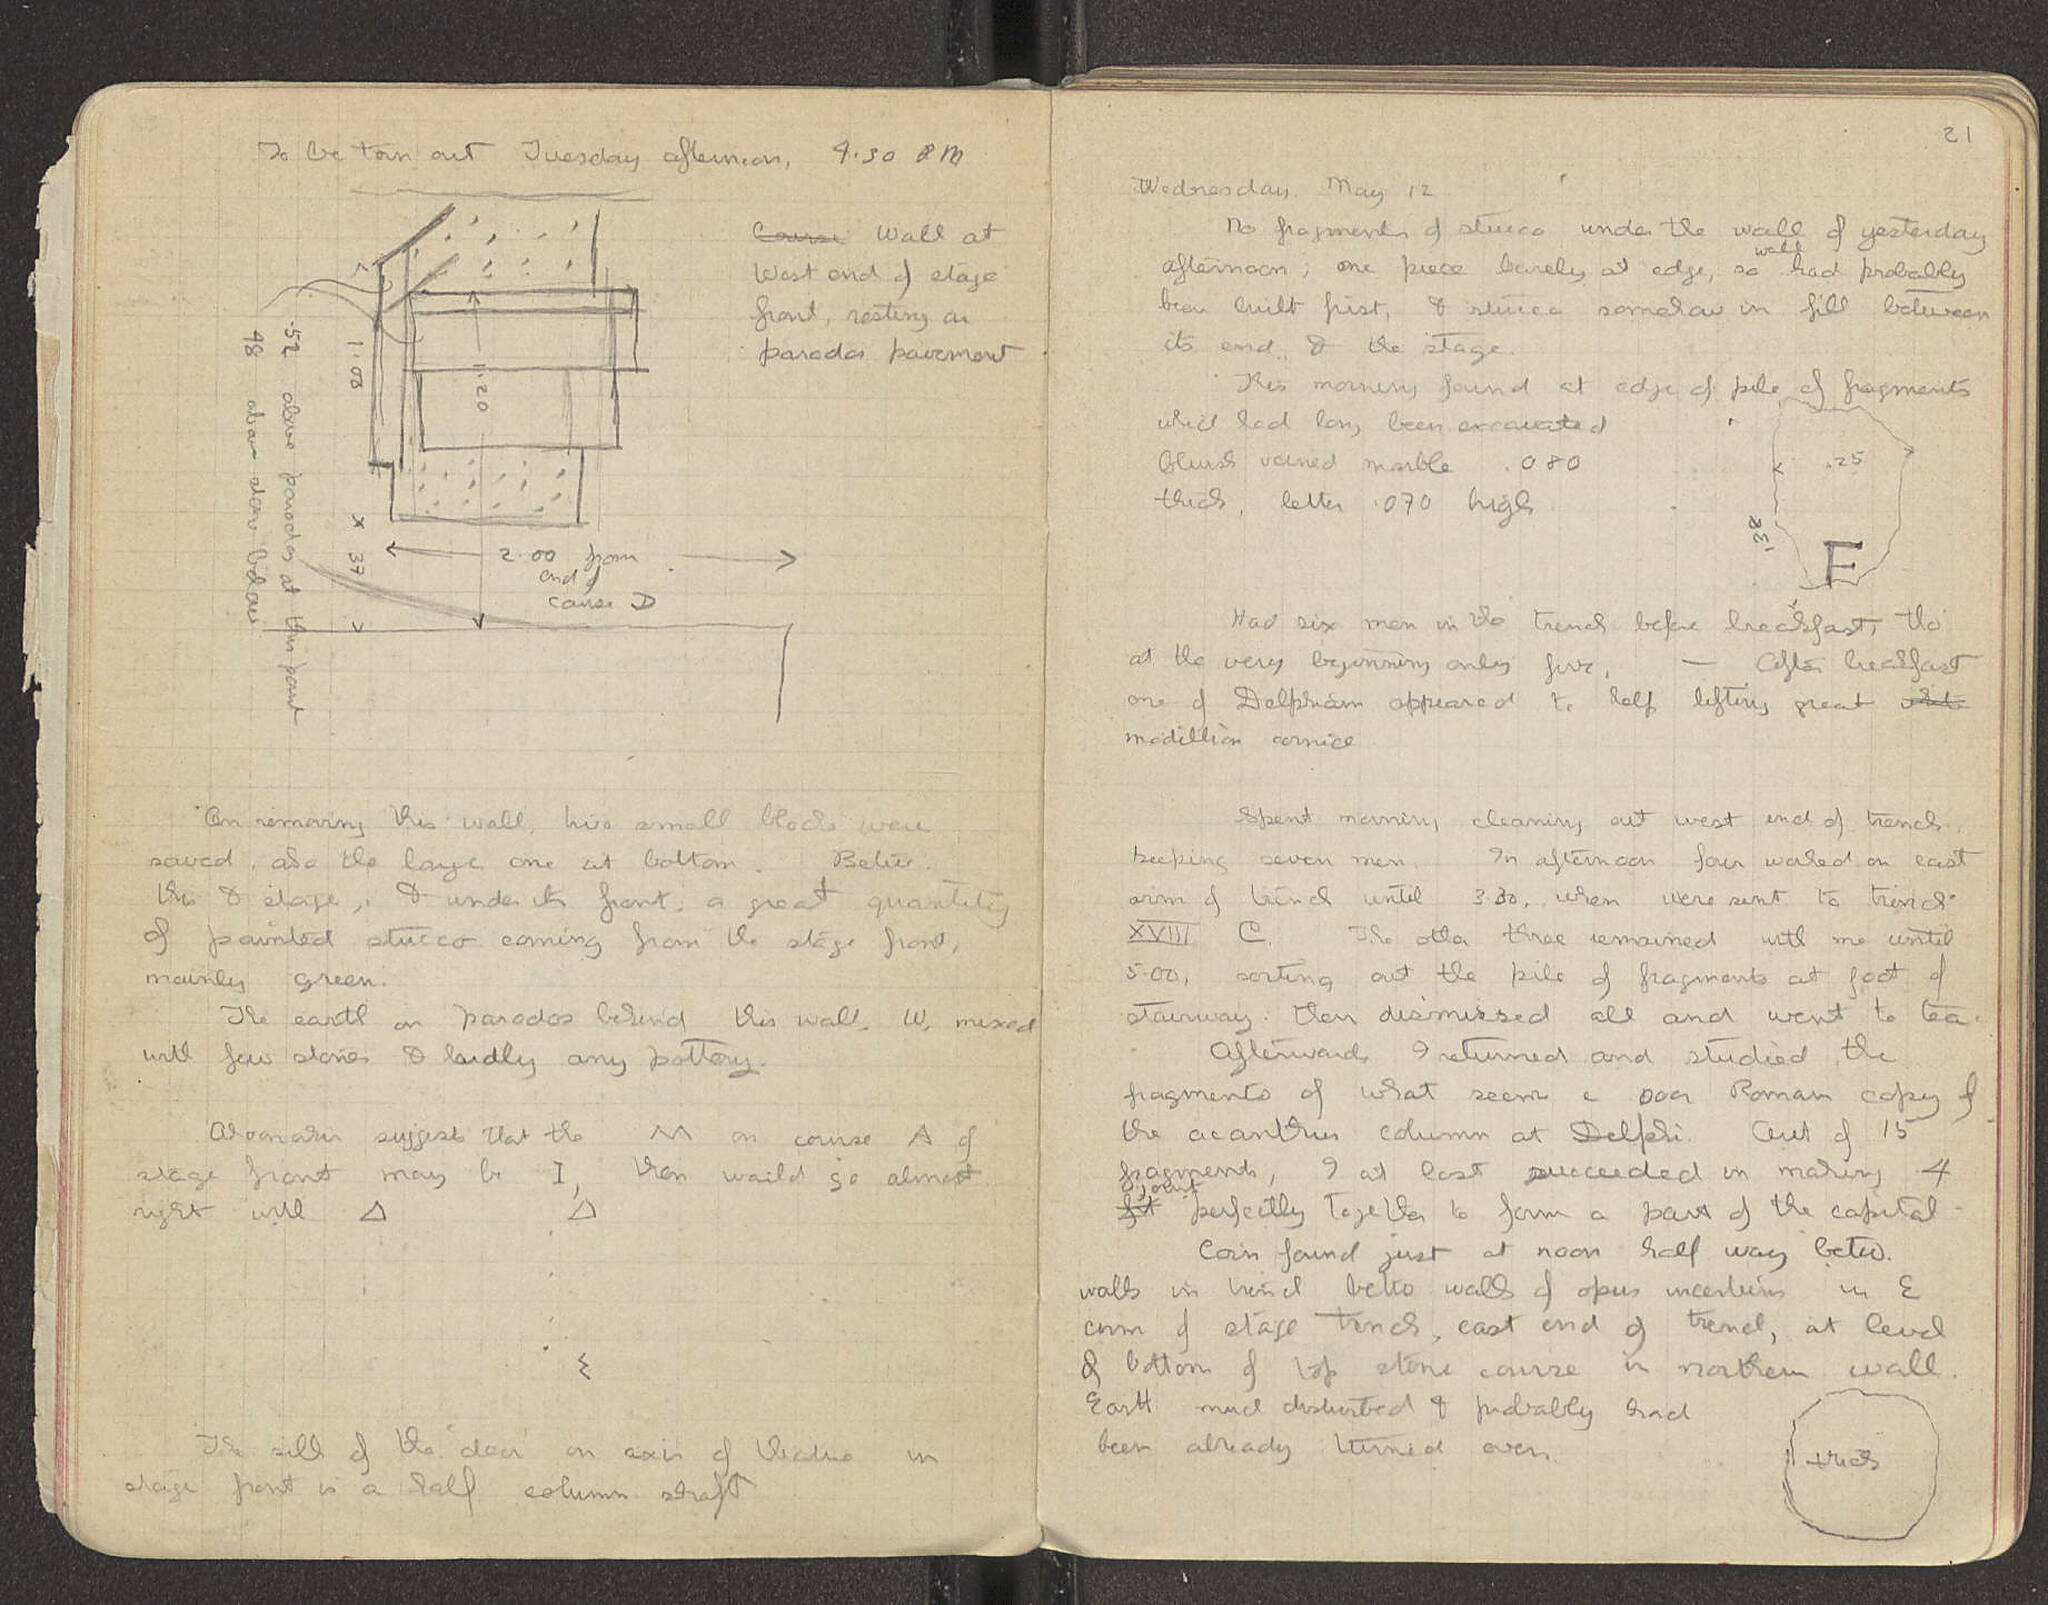 To be torn out Tuesday afternoon, 4.30 PM
Course Wall at
West end of stage
front, resting on
parodos pavement
1.20
1.08
.52 above parodos at this point
48 above stone below
x 37
2.00 from
end of
course D
On removing this wall, two small blocks were
saved, also the large one at bottom. Betw.
this & stage, & under its front, a great quantity
of painted stucco coming from the stage front,
mainly green.
The earth on parodos behind this wall, W, mixed
with few stones & hardly any pottery.
suggests that the M on course A of
stage front may be I, then would go almost
right with Δ Δ
Σ
The sill of the door on axis of theatre in
stage front is a half column shaft
21
Wednesday. May 12
No fragments of stucco under the wall of yesterday
afternoon; one piece barely at edge, so wall had probably
been built first, & stucco somehow in fill between
its end & the stage.
This morning found at edge of pile of fragments
which had long been excavated
bluish veined marble .080
thick, letter .070 high
.25
.38
E
Had six men in the trench before breakfast, tho
at the very beginning only five. — After breakfast
one of Delphian appeared to help lifting great
modillion cornice
Spent morning cleaning out west end of trench.
keeping seven men. In afternoon four worked on east
arm of trench until 3.30, when were sent to trench
XVIII C. The other three remained with me until
5.00, sorting out the pile of fragments at foot of
stairway. Then dismissed all and went to tea.
Afterwards I returned and studied the
fragments of what seem a poor Roman copy of
the acanthus column at Delphi. Out of 15
fragments, I at last succeeded in making 4
fit join perfectly together to form a part of the capital
Coin found just at noon half way betw.
walls in trench betw walls of opus incertum in E
arm of stage trench, east end of trench, at level
of bottom of top stone course in northern wall.
Earth much disturbed & probably had
been already turned over.
thick